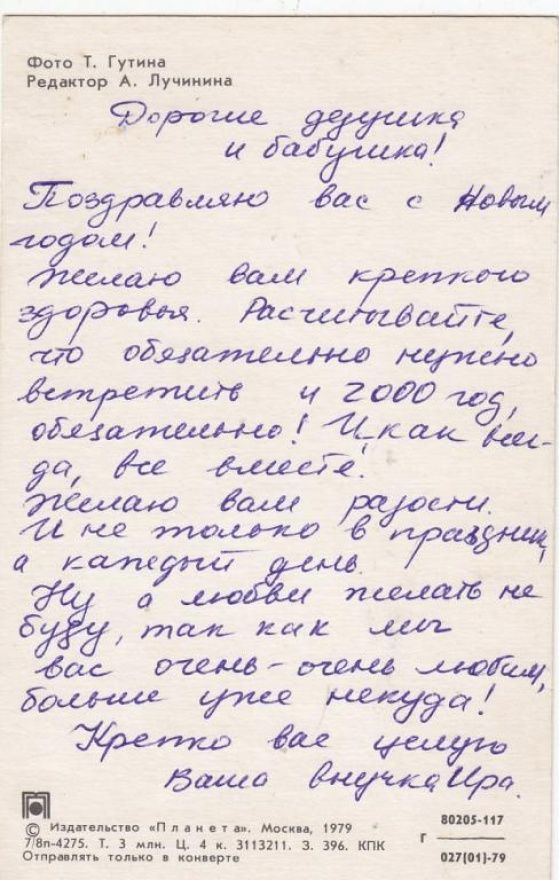 Фото Т. Гутина
Редактор А. Лучинина
Дорогие дедушка
и бабушка!
Поздравляю вас с Новым
годом!
Желаю вам крепкого
здоровья. Расчитывайте,
что обязательно нужно
встретить и 2000 год,
обязательно! И, как всег-
да, все вместе.
Желаю вам радости.
И не только в праздник,
а каждый день.
Ну а любви желать не
буду, так как мы
вас очень-очень любим,
больше уже некуда!
Крепко вас целую
Ваша внучка Ира.
© Издательство «Планета». Москва, 1979
7/8п-4275. Т. 3 млн. Ц. 4 к. 3113211. З. 396. КПК
Отправлять только в конверте
Г 80205-117
027(01)-79